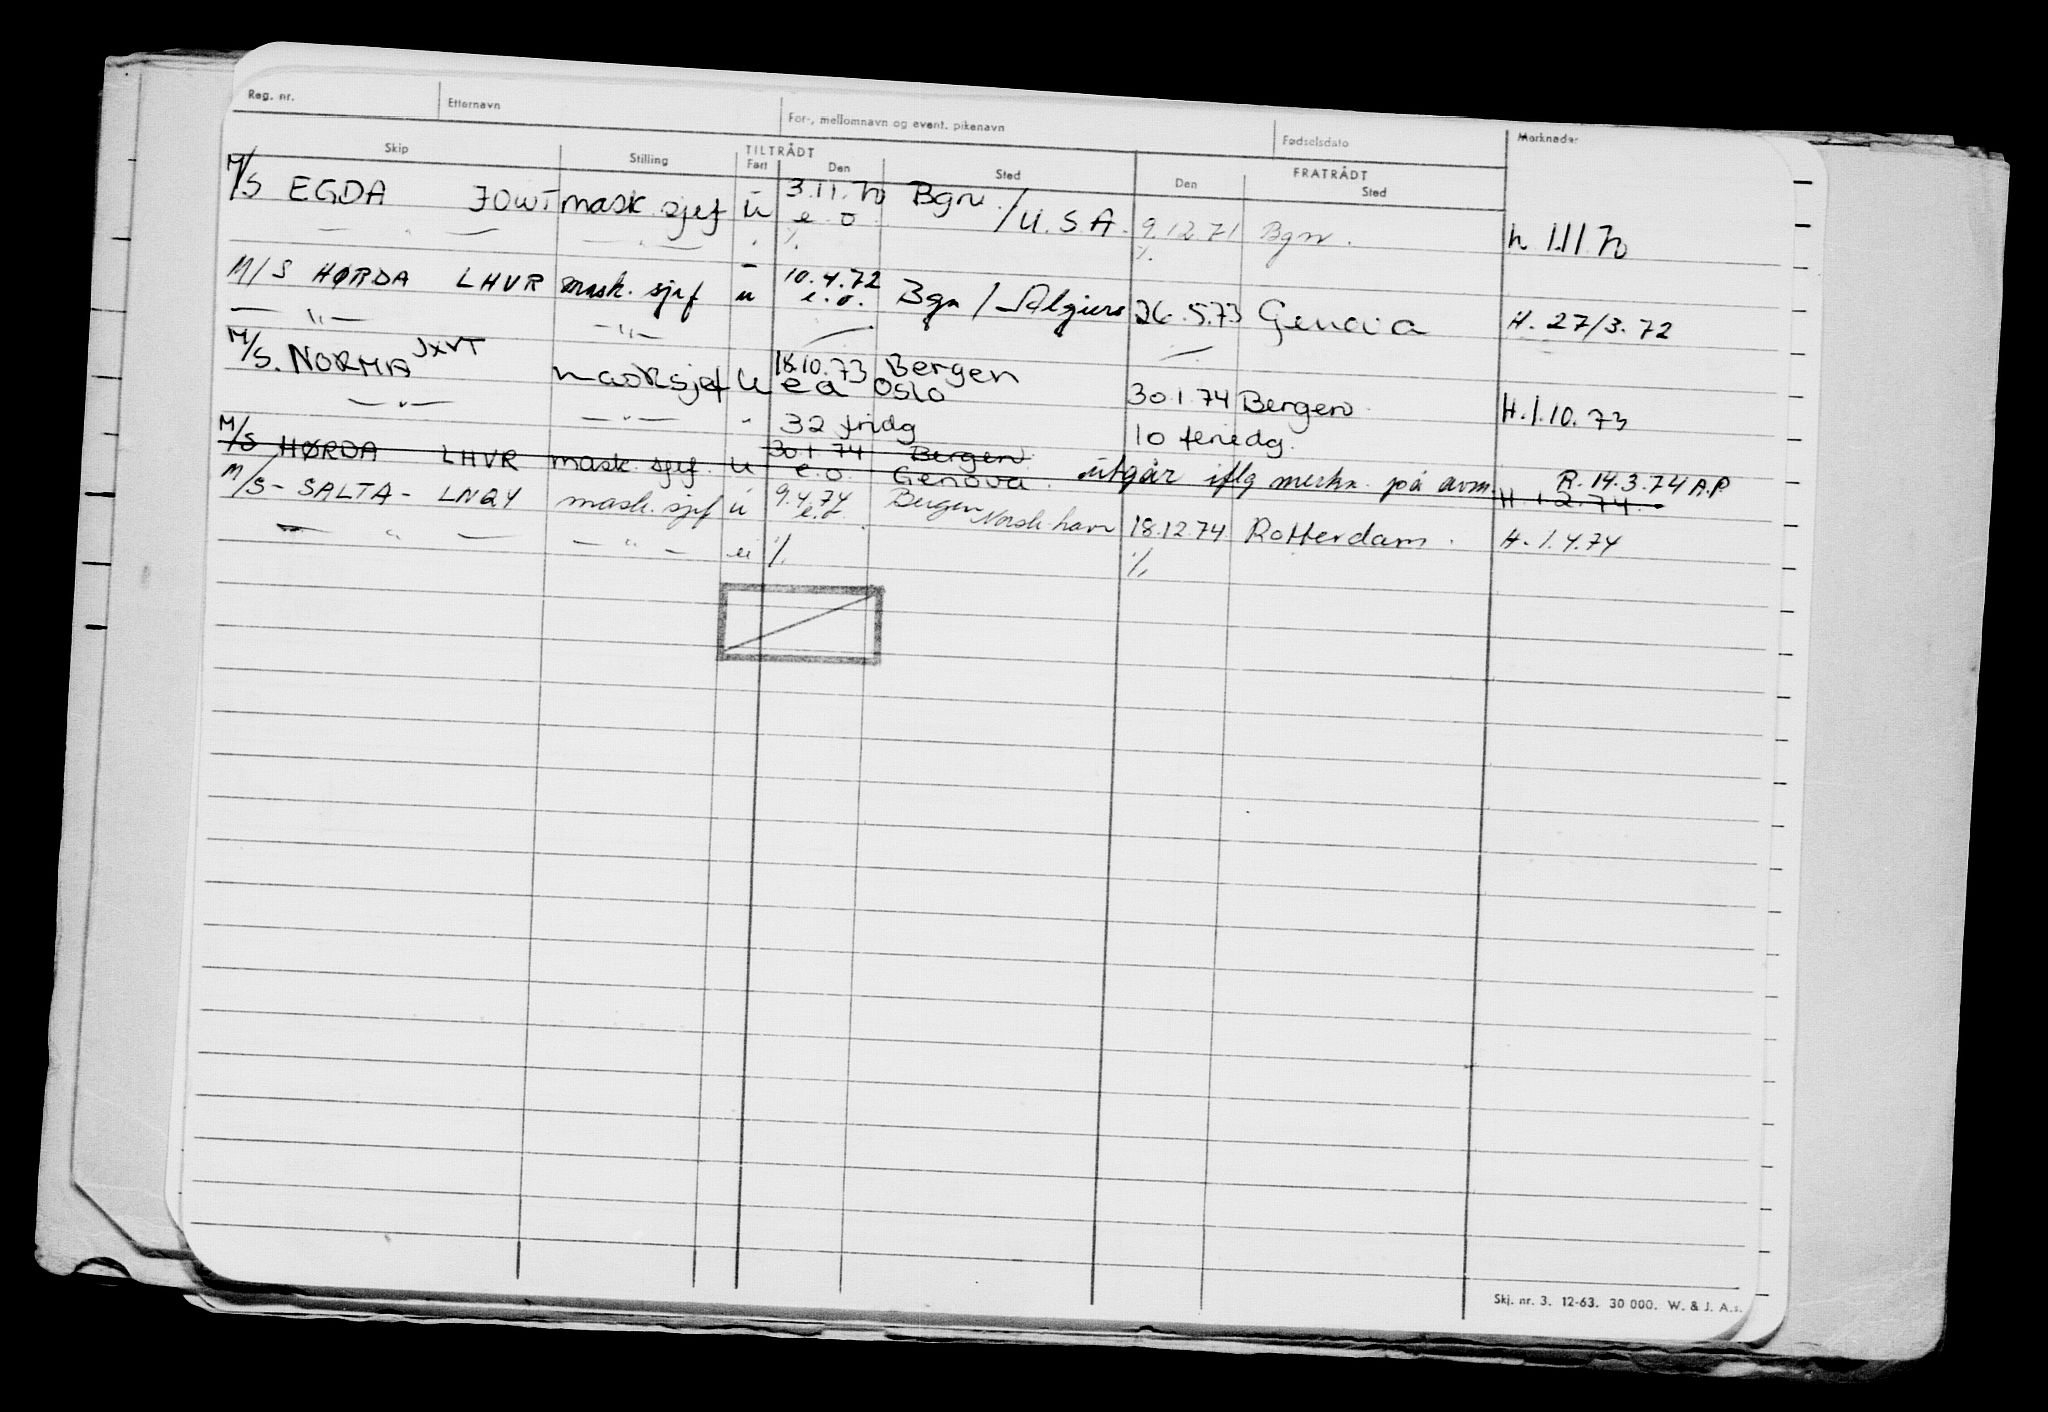 Reg. nr. Etternavn For-, mellomnavn og event. pikenavn Fødselsdato Merknader
Skip Stilling TILTRÅDT FRATRÅDT
Fart Den Sted Den Sted
M/S EGDA JOWT mask. sjef u 3.11.70 Bgn. / U.S.A. 9.12.71 Bgn. h 1.11.70
e.o.
— " — — " — " ·/. ·/.
M/S HØRDA LHVR mask. sjef u 10.4.72 Bgn / Algiers 26.5.73 Genova H. 27/3.72
e.o.
— " — — " —
M/S. NORMA JXVT masksjef u 18.10.73 Bergen 30.1.74 Bergen H.1.10.73
ea Oslo
— " — — " — " 32 fridg 10 feriedg.
M/S HØRDA LHVR mask. sjef. u 30.1.74 Bergen utgår iflg merkn. på avm. R. 14.3.74 A.P
e.o. Genova. H 1.2.74.
M/S - SALTA - LNQY mask. sjef u 9.4.74 Bergen Norsk havn 18.12.74 Rotterdam. H. 1.4.74
— " — — " — u ·/. ·/.
Skj. nr. 3. 12-63. 30 000. W. & J. A.s.